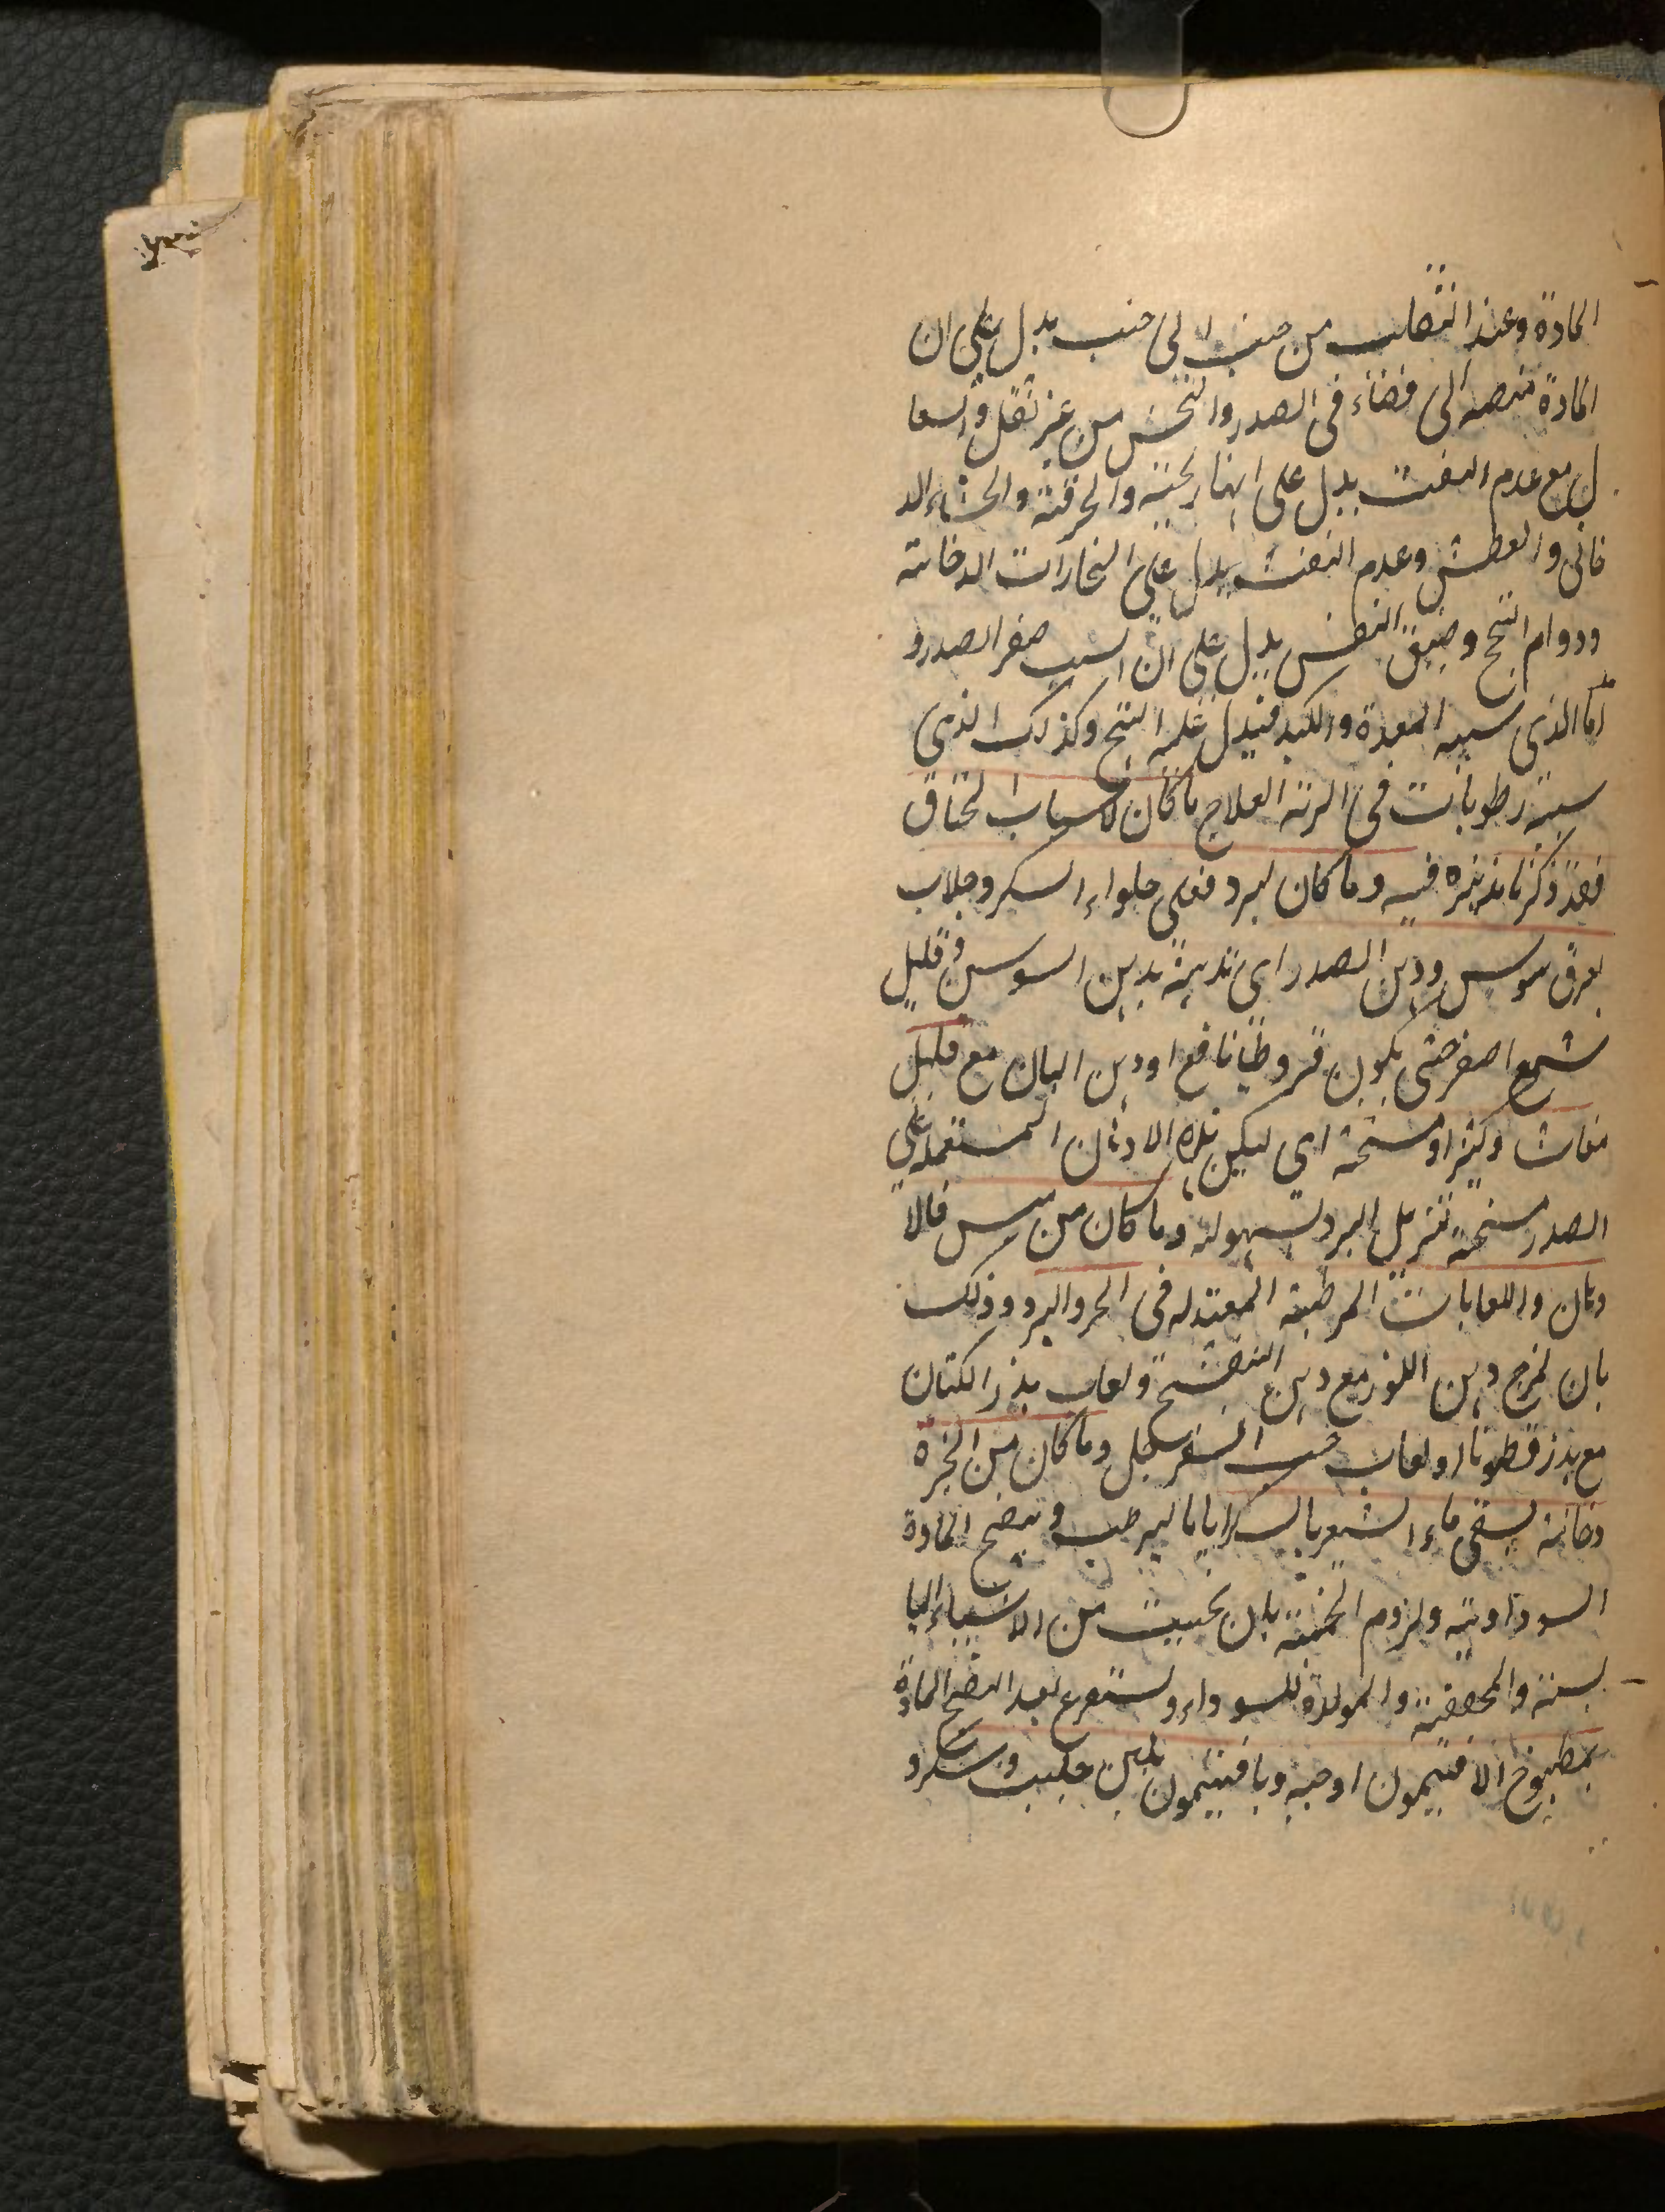 المادة وعند انتصاب من جنب الى جنب يدل على ان
المادة منصبه الى فضاء فى الصدر والنخس من غير ثقل والسعا
ل مع عدم النفث يدل على انها ريحية والحرقة والجشاء الد
خانى والعطش وعدم النفث يدل على البخارات الدخانية
ودوام النتح وضيق النفس يدل على ان السبب صغر الصدر و
اما الذى سببه المعدة والكبد فيدل عليه النتح وكذلك الذى
سببه رطوبات فى الرئة العلاج ما كان لاسباب الخناق
فقد ذكرنا تدبيره فيه وما كان لبرد فعلى حلواء السكر وجلاب
بعرق سوس ودهن الصدر اى تدهينه بدهن السوسن وقليل
شمع اصفر حتى يكون قيروطيا نافع او دهن البان مع قليل
مغاث وكثيرا ومسخنة اى ليكن هذه الادهان المستعملة على
الصدر مسخنة تزيل البرد بسهولة وما كان من يبس فالا
دهان واللعابات المرطبة المعتدله فى الحر والبرد وذلك
بان يمزج دهن اللوز مع دهن البنفسج ولعاب بذر الكتان
مع بذر قطونا او لعاب حب السفرجل وما كان من ابخرة
دخانية يسقى ماء الشعير بالسكر اياما ليرطب وينضج المادة
السوداوية ولزوم الحمية بان يجتنب من الاشياء اليا
بسة والمجففة والمولدة للسوداء ويستفرغ بعد النضج المادة
بمطبوخ الافتيمون او حبه وبافتيمون بلبن حليب وسكر و